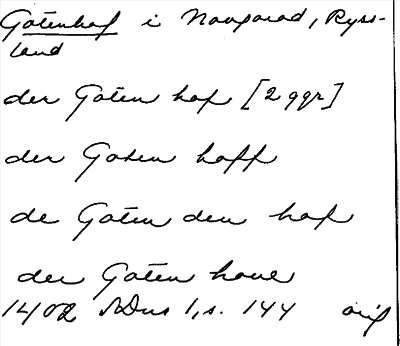 Gotenhof i Novgorod, Ryss-
land
der Goten hof [2 ggr]
der Goten hoff
de Goten den hof
der Goten houe
1402 SDns 1, s. 144 orig